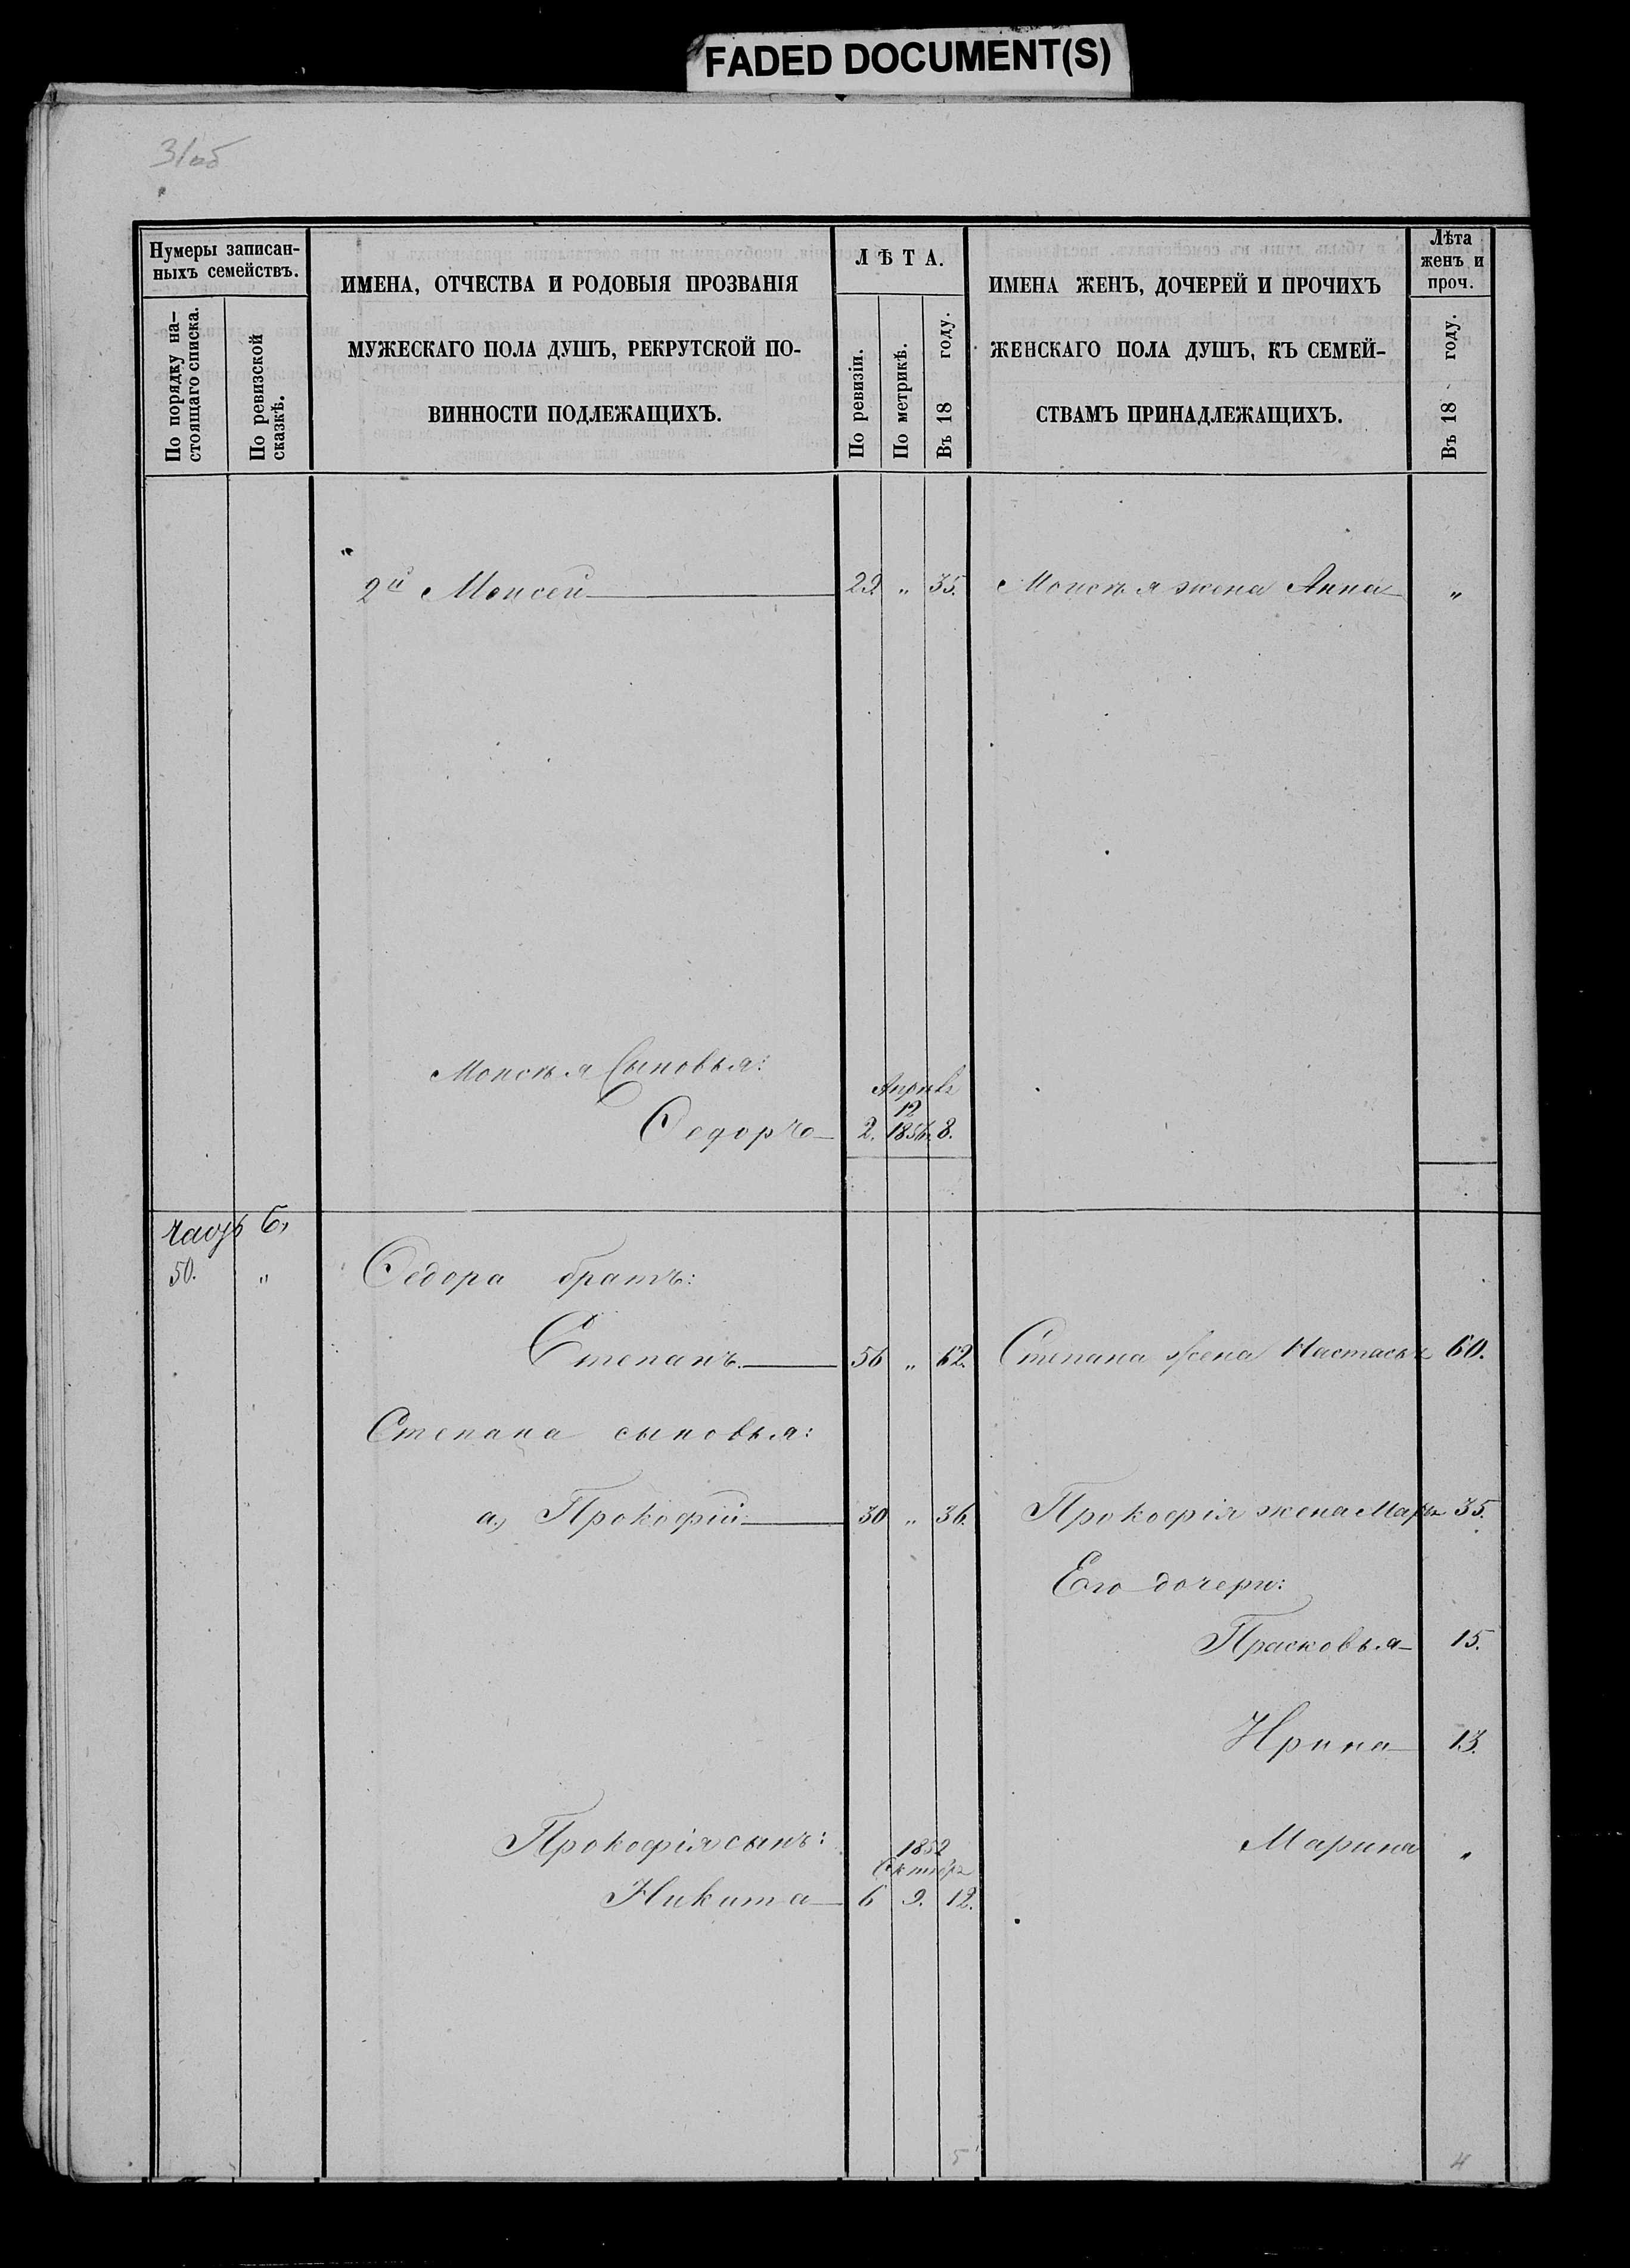 FADED DOCUMENT(S)
31об
Нумеры записан-
ныхъ семействъ.
По порядку на-
стоящаго списка.
По ревизской
сказкѣ.
ИМЕНА, ОТЧЕСТВА И РОДОВЫЯ ПРОЗВАНІЯ
МУЖЕСКАГО ПОЛА ДУШЪ, РЕКРУТСКОЙ ПО-
ВИННОСТИ ПОДЛЕЖАЩИХЪ.
ЛѢТА.
По ревизіи.
По метрикѣ.
Въ 18 году.
ИМЕНА ЖЕНЪ, ДОЧЕРЕЙ И ПРОЧИХЪ
ЖЕНСКАГО ПОЛА ДУШЪ, КЪ СЕМЕЙ-
СТВАМЪ ПРИНАДЛЕЖАЩИХЪ.
Лѣта
женъ и
проч.
Въ 18 году.
2й Моисей 29. " 35. Моисѣя жена Анна "
Моисѣя Сыновья:
Апрѣль
12
Ѳедоръ 2. 1856. 8.
6.
50. " Ѳедора братъ:
Степанъ. 56 " 62. Степана жена Настасья 60.
Степана сыновья:
а, Прокофій 30 " 36. Прокофія жена 35.
Его дочери:
Прасковья 15.
Ирина 13.
Прокофія сынъ: 1852 Марина "
Октябрь
Никита 6 9. 12.
5 4